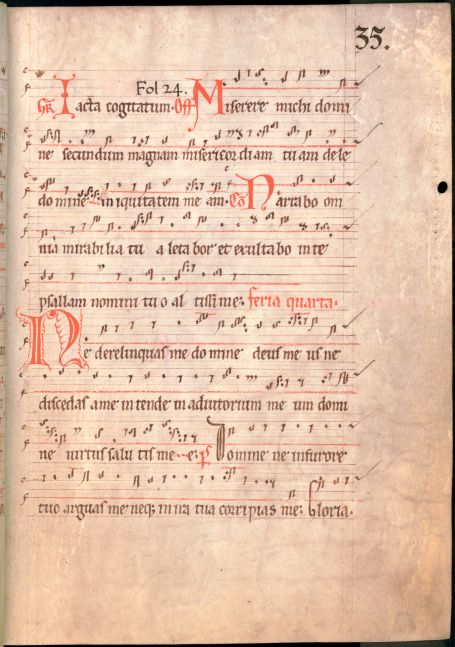 35.
Fol 24.
Gr Iacta cogitatum. Off Miserere michi domi
ne secundum magnam misericordiam tuam dele
domine iniquitatem meam. Co Narrabo om
nia mirabilia tua letabor et exultabo in te
psallam nomini tuo altissime. feria quarta.
Ne derelinquas me domine deus meus ne
discedas a me intende in adiutorium meum domi
ne virtus salutis mee. ps Domine ne in furore
tuo arguas me neq; in ira tua corripias me. Gloria.